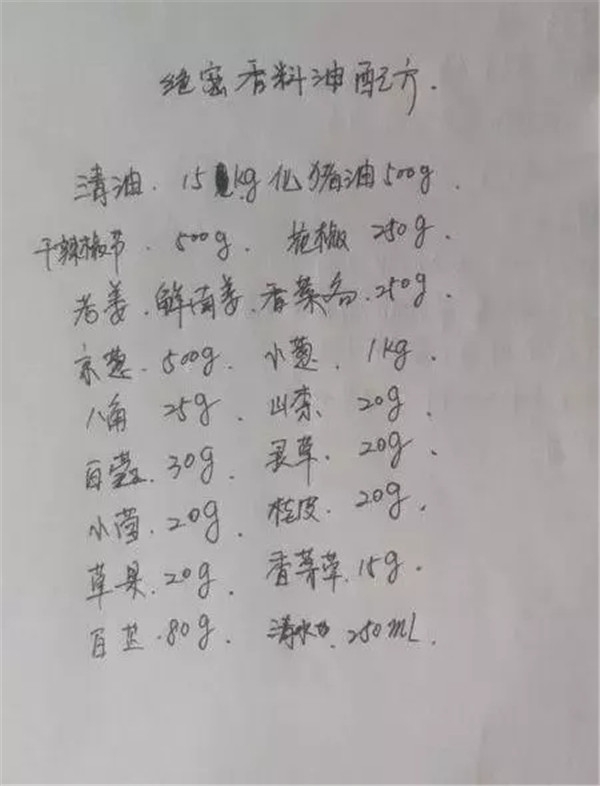 绝密香料油配方.
清油. 15kg 化猪油500g.
干辣椒节. 500g. 花椒 250g.
老姜.鲜南姜.香菜各.250g.
京葱.500g. 小葱. 1kg.
八角 25g. 山柰 20g.
白蔻.30g. 灵草.20g.
小茴.20g. 桂皮.20g.
草果.20g. 香茅草.15g.
白芷.80g. 清水 250mL.